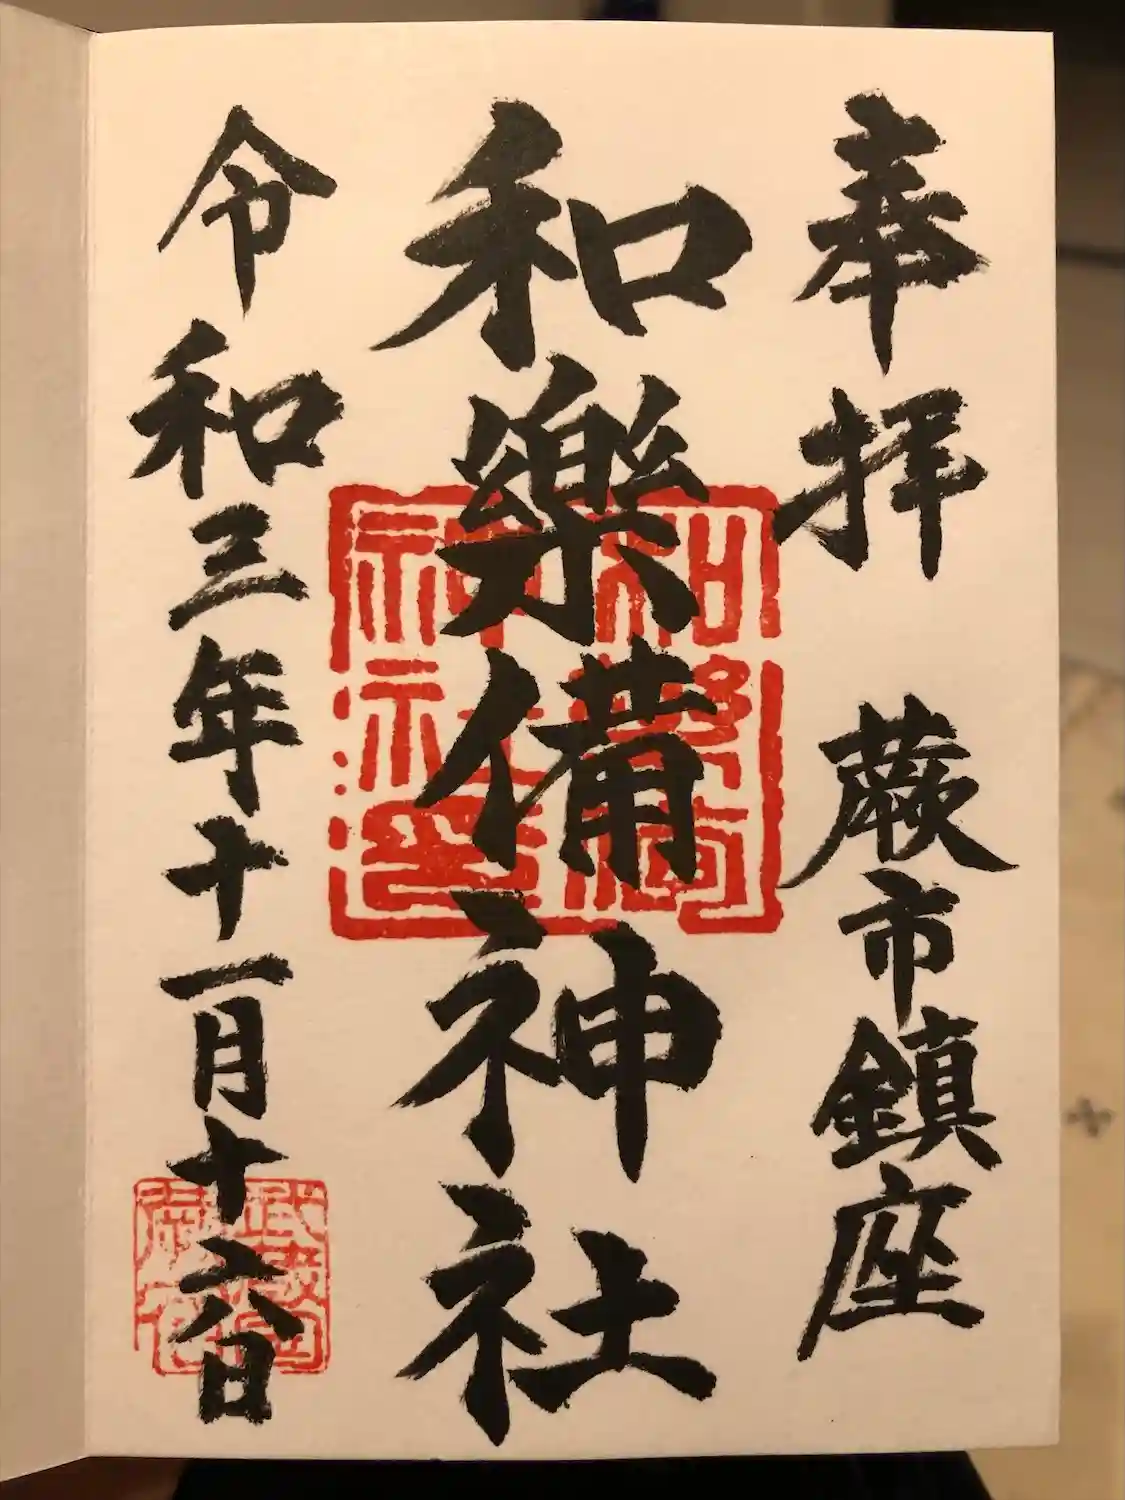 奉拝 蕨市鎮座
和樂備神社
和樂備神社印
令和三年十一月十六日